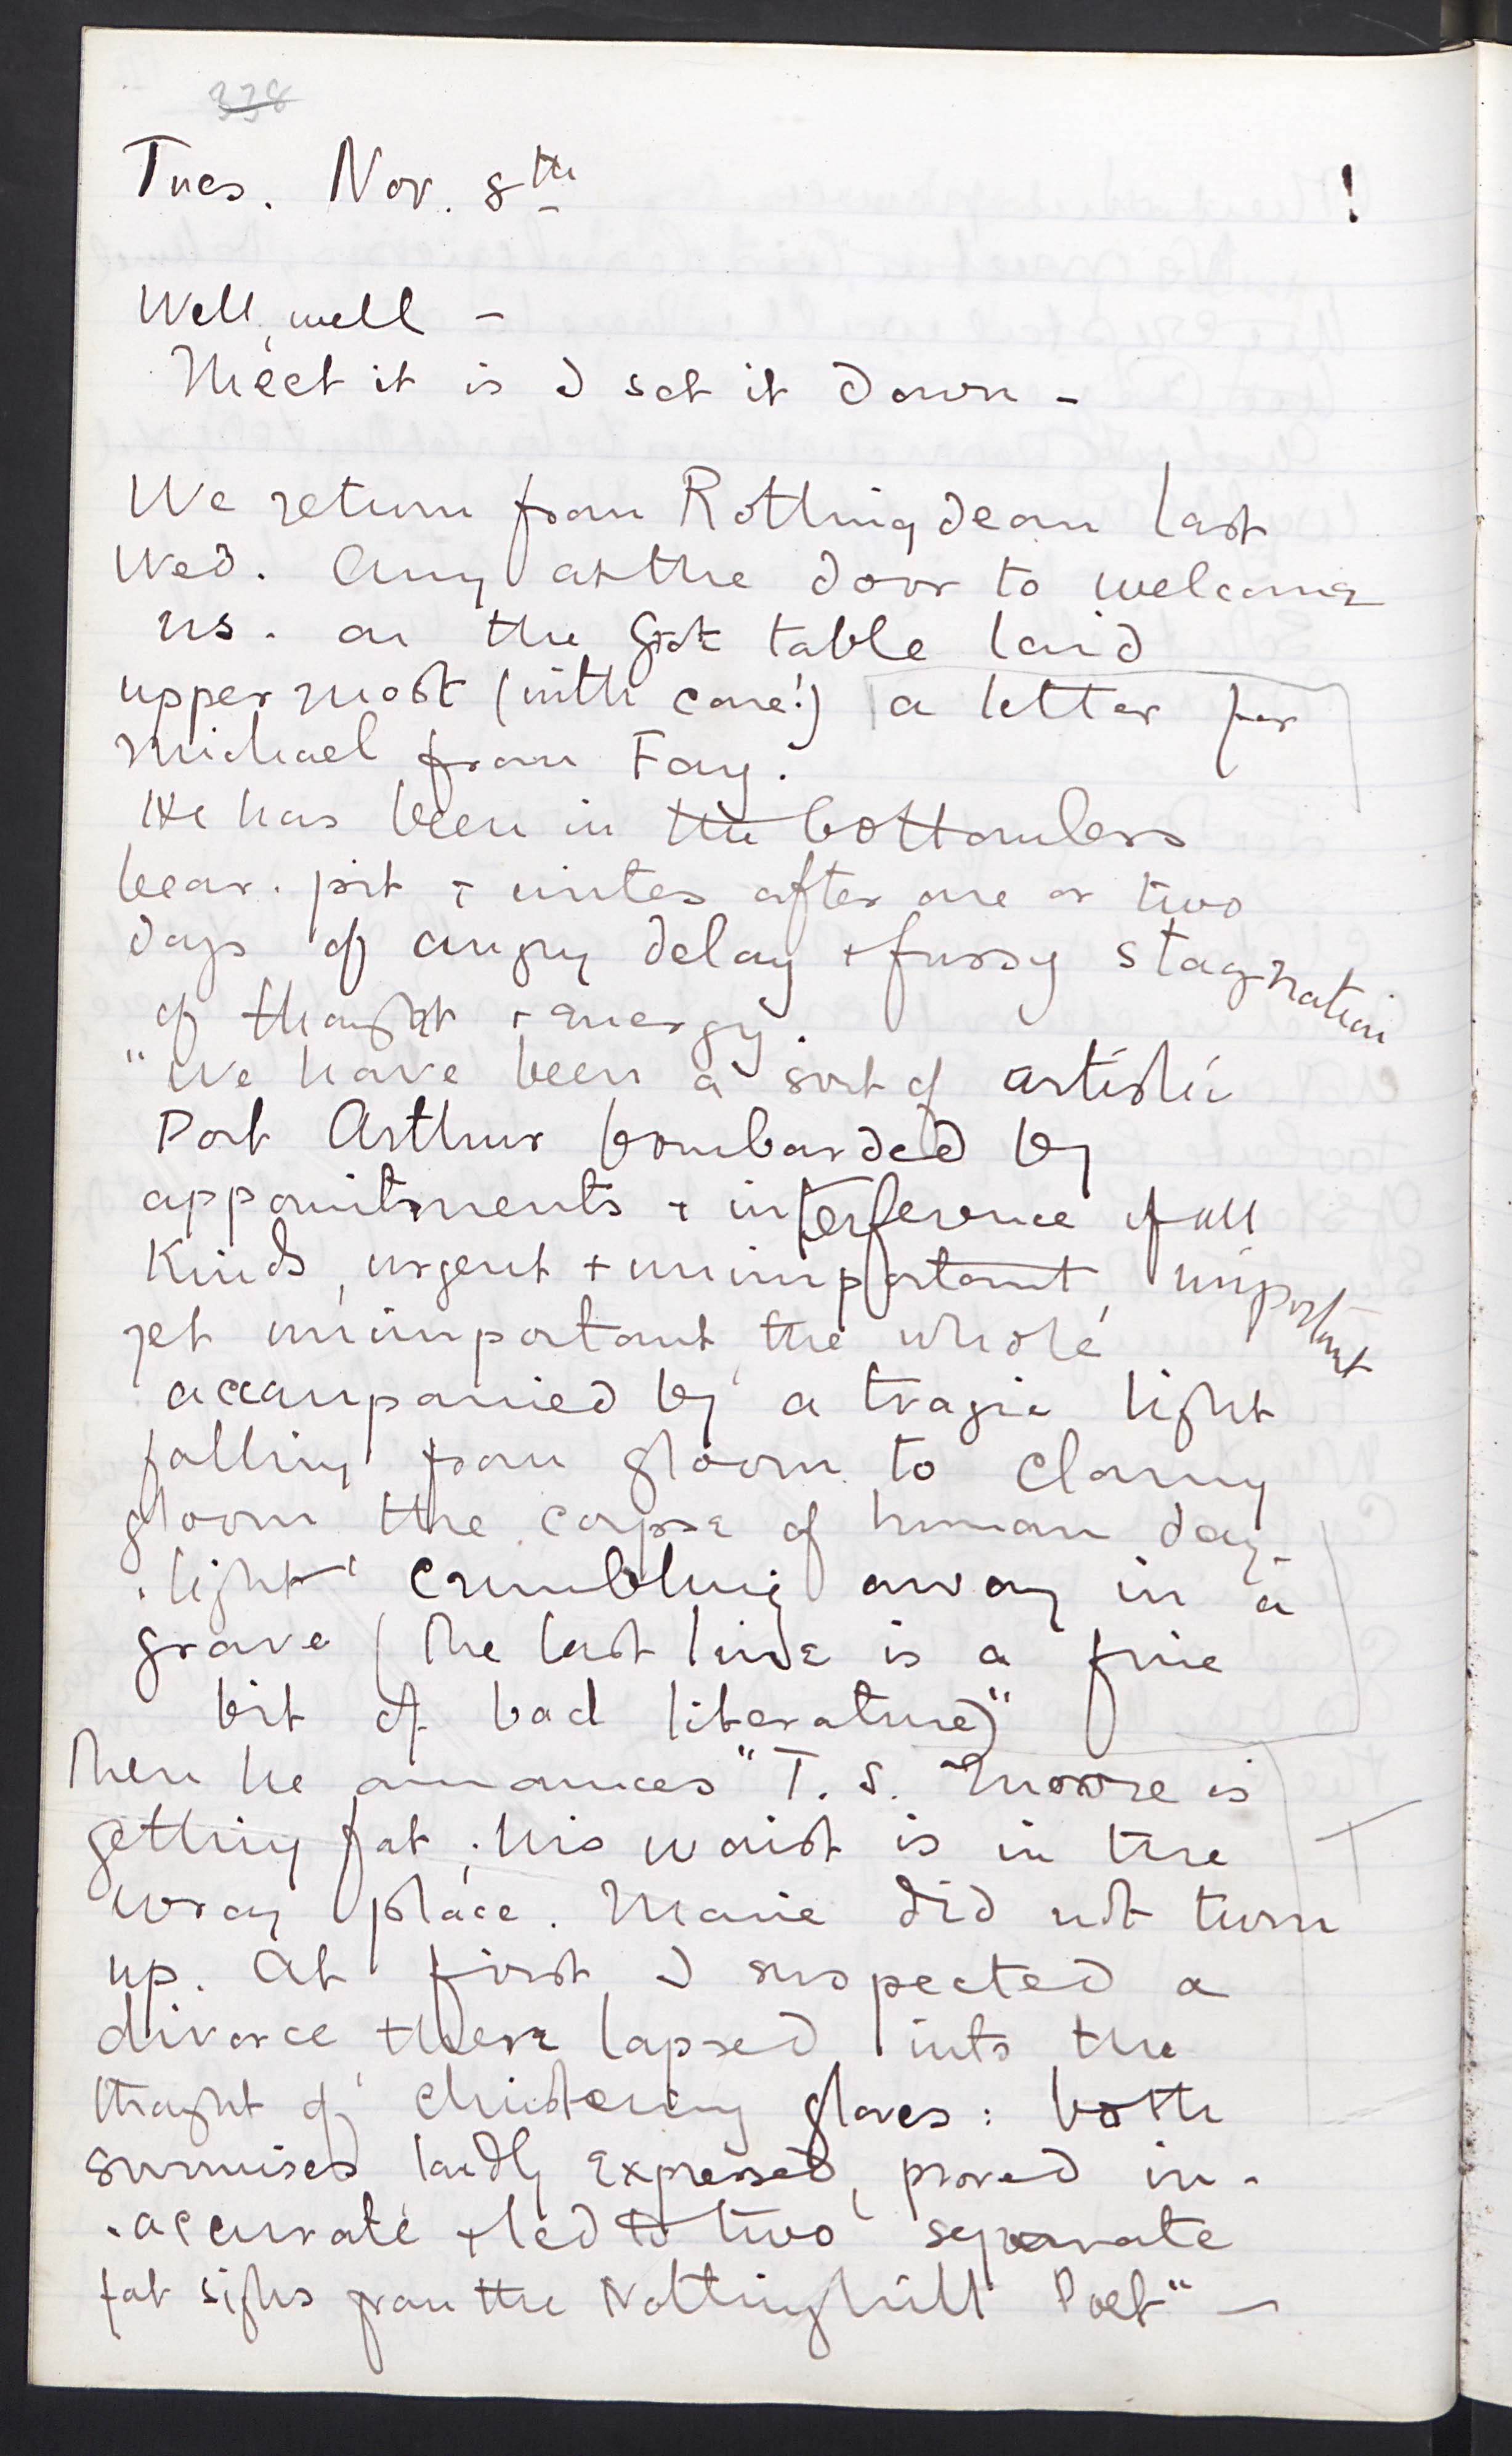 338
Tues. Nov. 8th !
Well, well –
Meet it is I set it down –
We return from Rottingdean last
Wed. Amy at the door to welcome
us. On the Grot table laid
uppermost (with care!) a letter for
Michael from Fay.
He has been in the bottomless
bear-pit & writes after one or two
days of angry delay & fussy stagnation
of thought & energy.
"We have been a sort of artistic
Port Arthur bombarded by
appointments & interference of all
kinds, urgent & unimportant, important
yet unimportant, the whole
accompanied by a tragic light
falling from gloom to clammy
gloom the corpse of human day-
-light crumbling away in a
grave (The last line is a fine
bit of bad literature)"
Then he announces "T. S. Moore is
getting fat; his waist is in the
wrong place. Marie did not turn
up. At first I suspected a
divorce then lapsed into the
thought of christening gloves: both
surmises loudly expressed, proved in-
-accurate & led to two separate
fat sighs from the Nottinghill Poet" –